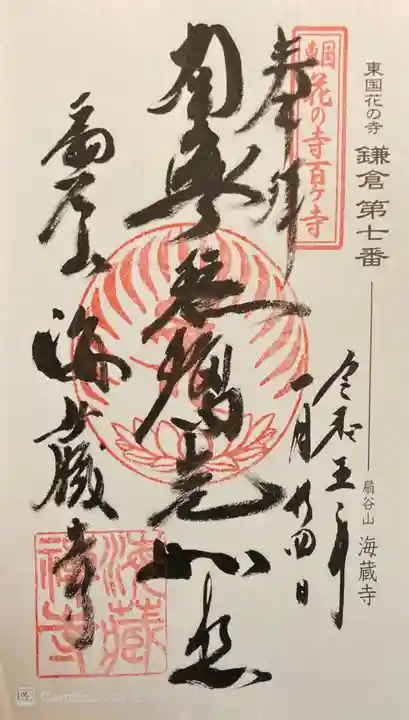 東国花の寺 鎌倉 第七番
扇谷山 海蔵寺
東国
花の寺百ヶ寺
奉拝
令和五年
一月廿四日
南無薬師瑠璃光如来
扇谷山
海蔵寺
海蔵
禅寺
CamScanner